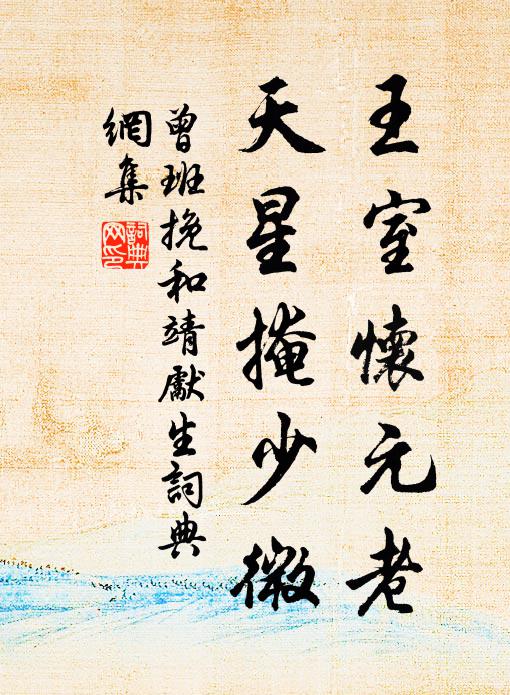 王室懷元老
天星掩少微
曾班挽和靖處生詞典
網集
詞典網印